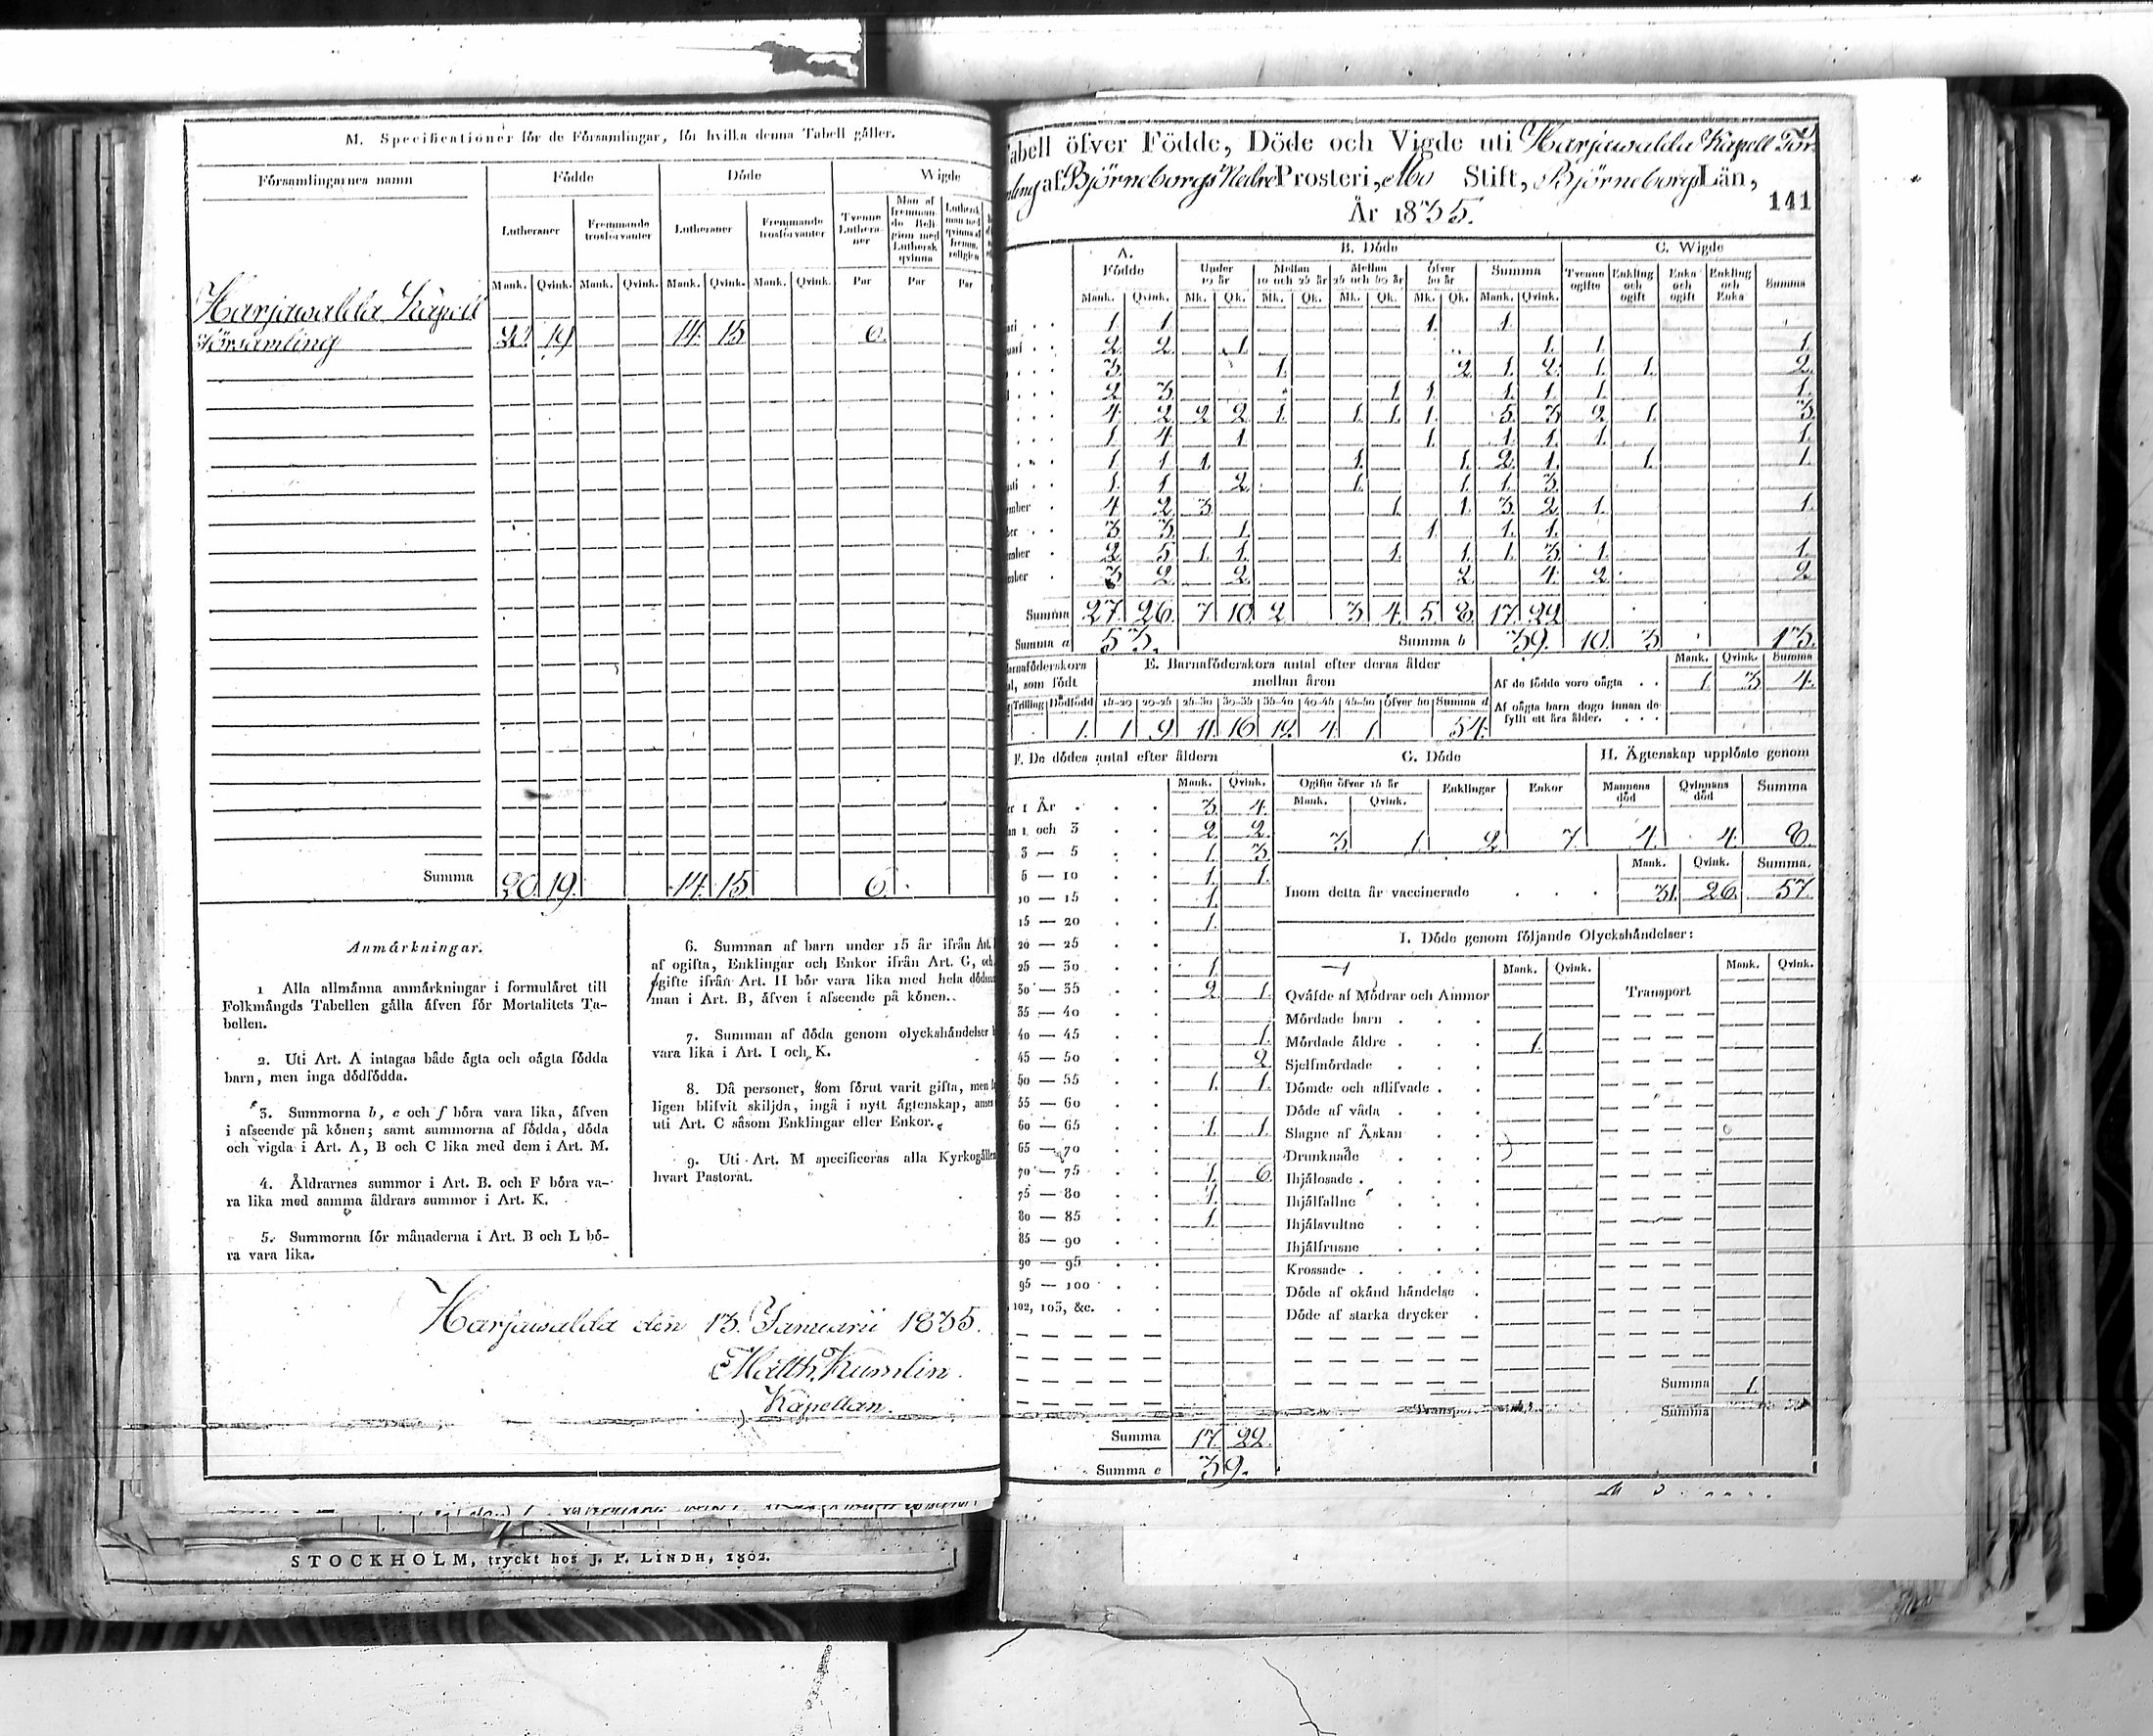 M. Specificationer för de Församlingar, för hvilka denna Tabell gäller.
Församlingarnes namn
Födde
Döde
Wigde
Lutheraner
Fremmande trosförvanter
Lutheraner
Fremmande trosförvanter
Tvenne Lutheraner
Man af fremmande Religion med Luthersk qvinna
Mank. Qvink. Mank. Qvink. Mank. Qvink. Mank. Qvink. Par Par Par
Harjawalda Kapell
Församling 19 14. 15 6.
Summa 20. 19. 14. 15 6.
Anmärkningar.
1 Alla allmänna anmärkningar i formuläret till
Folkmängds Tabellen gälla äfven för Mortalitets Ta-
bellen.
2. Uti Art. A intagas både ägta och oägta födda
barn, men inga dödfödda.
3. Summorna b, c och f böra vara lika, äfven
i afseende på könen; samt summorna af födda, döda
och vigda i Art. A, B och C lika med dem i Art. M.
4. Åldrarnes summor i Art. B. och F böra va-
ra lika med samma åldrars summor i Art. K.
5. Summorna för månaderna i Art. B och L bö-
ra vara lika.
6. Summan af barn under 15 år ifrån Art.
af ogifta, Enklingar och Enkor ifrån Art. G, och
gifte ifrån Art. H bör vara lika med hela
man i Art. B, äfven i afseende på könen.
7. Summan af döda genom olyckshändelser
vara lika i Art. I och K.
8. Då personer, som förut varit gifta, men
ligen blifvit skiljda, ingå i nytt ägtenskap,
uti Art. C såsom Enklingar eller Enkor.
9. Uti Art. M specificeras alla Kyrkogällen
hvart Pastorat.
Harjawalda den 13. Januarii 1835.
Matth. Kumlin
Kapellan.
STOCKHOLM, tryckt hos J. P. LINDH, 1802.
abell öfver Födde, Döde och Vigde uti Harjawalda Kapell För-
af Björneborgs Nedre Prosteri, Åbo Stift, Björneborgs Län,
År 1835.
141
A. Födde
B. Döde
C. Wigde
Under 10 år
Mellan 10 och 25 år
Mellan 25 och 50 år
Öfver 50 år
Summa
Tvenne ogifte
Enkling och ogift
Enka och ogift
Enkling och Enka
Summa
Mank. Qvink. Mk. Qk. Mk. Qk. Mk. Qk. Mk. Qk. Mank. Qvink.
1. 1. 1. 1.
2. 2. 1. 1. 1. 1.
3. 1. 2. 1. 2. 1. 1. 2.
2. 3. 1. 1. 1. 1. 1. 1.
4. 2. 2. 2. 1. 1. 1. 1. 5. 3. 2. 1. 3.
1. 4. 1. 1. 1. 1. 1. 1.
1. 1. 1. 1. 1. 2. 1. 1. 1.
1. 1. 2. 1. 1. 1. 3.
4. 2. 3. 1. 1. 3. 2. 1. 1.
3. 3. 1. 1. 1. 1.
2. 5. 1. 1. 1. 1. 1. 3. 1. 1.
3. 2. 2. 2. 4. 2. 2.
Summa 27. 26. 7. 10. 2 3. 4. 5. 8. 17. 22
Summa a 53. Summa b 39. 10. 3 13.
som födt
Trilling Dödfödd
1.
E. Barnaföderskors antal efter deras ålder
mellan åren
15-20 20-25 25-30 30-35 35-40 40-45 45-50 Öfver 50 Summa d
1 9. 11. 16 12. 4. 1. 54.
Mank. Qvink. Summa
Af de födde voro oägta . . 1. 3. 4.
Af oägta barn dogo innan de
fyllt ett års ålder. . . .
F. De dödes antal efter åldern
Mank. Qvink.
1 År 3. 4.
1 och 3 2. 2.
3 — 5 1. 3.
5 — 10 1. 1.
10 — 15 1.
15 — 20 1.
20 — 25
25 — 30 1.
30 — 35 2. 1.
35 — 40
40 — 45 1.
45 — 50 2.
50 — 55 1. 1.
55 — 60
60 — 65 1. 1.
65 — 70
70 — 75 1. 6.
75 — 80 1.
80 — 85 1.
85 — 90
90 — 95
95 — 100
102, 103, &c.
Summa 17. 22.
Summa c 39.
G. Döde
Ogifte öfver 15 år
Mank. Qvink.
Enklingar
Enkor
3. 1. 2. 7.
H. Ägtenskap upplöste genom
Mannens död
Qvinnans död
Summa
4. 4. 8.
Mank. Qvink. Summa.
Inom detta år vaccinerade . . . 31. 26. 57.
I. Döde genom följande Olyckshändelser:
Mank. Qvink. Mank. Qvink.
Qväfde af Mödrar och Ammor
Transport
Mördade barn . . .
Mördade äldre . . . 1.
Sjelfmördade . .
Dömde och aflifvade . .
Döde af våda . . .
Slagne af Åskan . .
Drunknade . . .
Ihjälosade . . . .
Ihjälfallne . . .
Ihjälsvultne . . .
Ihjälfrusne . . .
Krossade . . . .
Döde af okänd händelse .
Döde af starka drycker .
Summa 1.
Transport
Summa